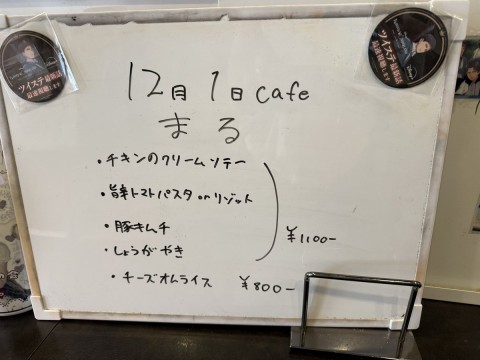 12月1日 cafe
まる
・チキンのクリームソテー
・旨辛トマトパスタ or リゾット
・豚キムチ
・しょうがやき
¥1100-
・チーズオムライス ¥800-
ツイステ最新話
ツイステ最新話